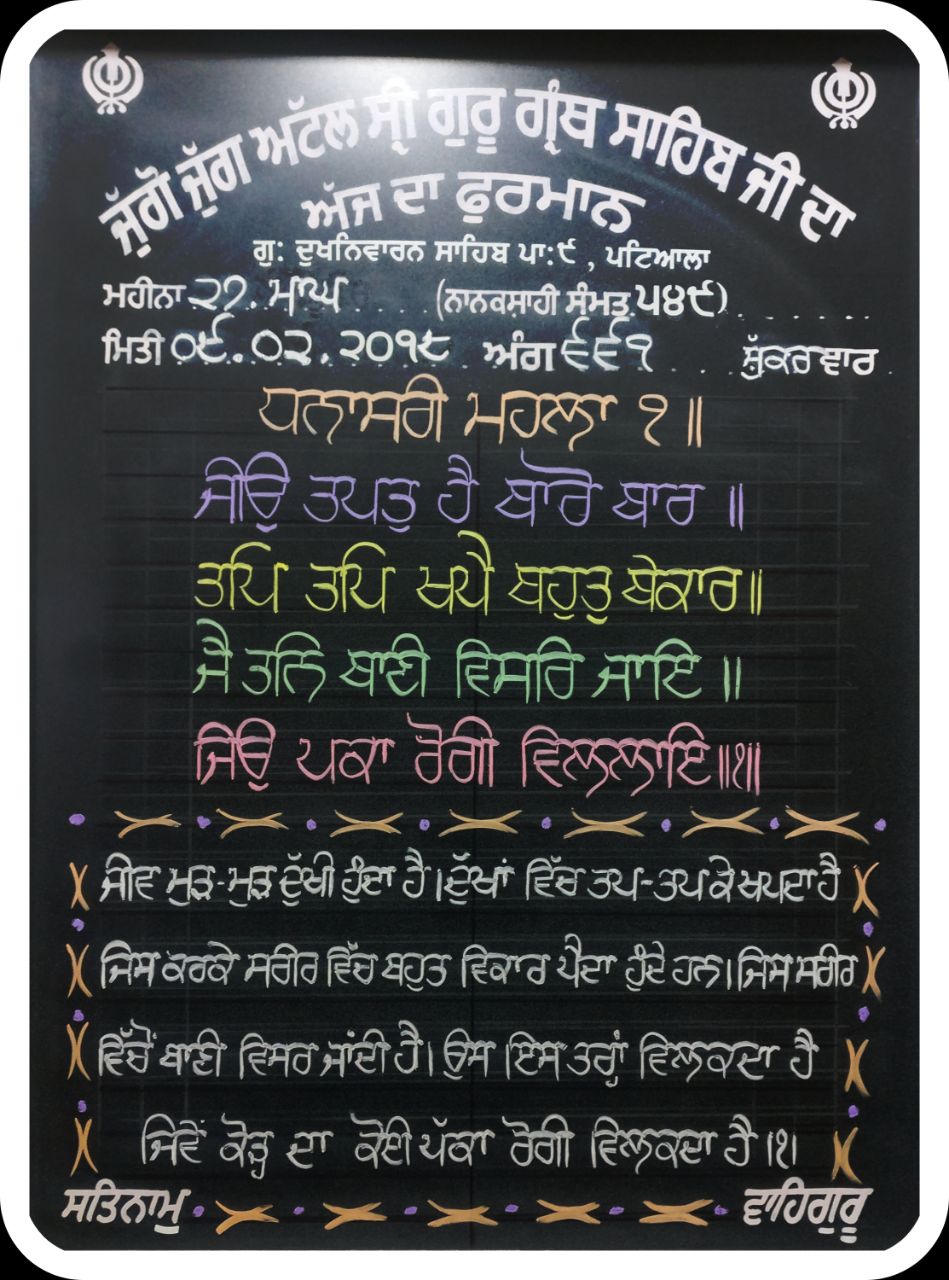 ਜੁੱਗੋ ਜੁੱਗ ਅਟੱਲ ਸ੍ਰੀ ਗੁਰੂ ਗ੍ਰੰਥ ਸਾਹਿਬ ਜੀ ਦਾ
ਅੱਜ ਦਾ ਫੁਰਮਾਨ
ਗੁ: ਦੁਖਨਿਵਾਰਨ ਸਾਹਿਬ ਪਾ:੯ , ਪਟਿਆਲਾ
ਮਹੀਨਾ ੨੭. ਮਾਘ (ਨਾਨਕਸ਼ਾਹੀ ਸੰਮਤ ੫੪੯)
ਮਿਤੀ ੦੯.੦੨.੨੦੧੮ ਅੰਗ ੬੬੧ ਸ਼ੁੱਕਰਵਾਰ
ਧਨਾਸਰੀ ਮਹਲਾ ੧॥
ਜੀਉ ਤਪਤੁ ਹੈ ਬਾਰੋ ਬਾਰ ॥
ਤਪਿ ਤਪਿ ਖਪੈ ਬਹੁਤੁ ਬੇਕਾਰ॥
ਜੈ ਤਨਿ ਬਾਣੀ ਵਿਸਰਿ ਜਾਇ ॥
ਜਿਉ ਪਕਾ ਰੋਗੀ ਵਿਲਲਾਇ॥੧॥
ਜੀਵ ਮੁੜ-ਮੁੜ ਦੁੱਖੀ ਹੁੰਦਾ ਹੈ।ਦੁੱਖਾਂ ਵਿੱਚ ਤਪ-ਤਪ ਕੇ ਖਪਦਾ ਹੈ
ਜਿਸ ਕਰਕੇ ਸਰੀਰ ਵਿੱਚ ਬਹੁਤ ਵਿਕਾਰ ਪੈਦਾ ਹੁੰਦੇ ਹਨ।ਜਿਸ ਸਰੀਰ
ਵਿੱਚੋਂ ਬਾਣੀ ਵਿਸਰ ਜਾਂਦੀ ਹੈ। ਉਸ ਇਸ ਤਰ੍ਹਾਂ ਵਿਲਕਦਾ ਹੈ
ਜਿਵੇਂ ਕੋੜ੍ਹ ਦਾ ਕੋਈ ਪੱਕਾ ਰੋਗੀ ਵਿਲਕਦਾ ਹੈ।੧।
ਸਤਿਨਾਮੁ ਵਾਹਿਗੁਰੂ